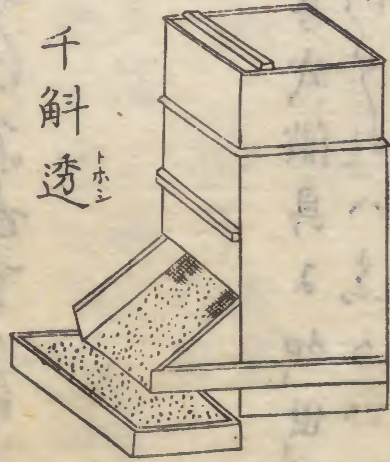 千斛透
トホシ